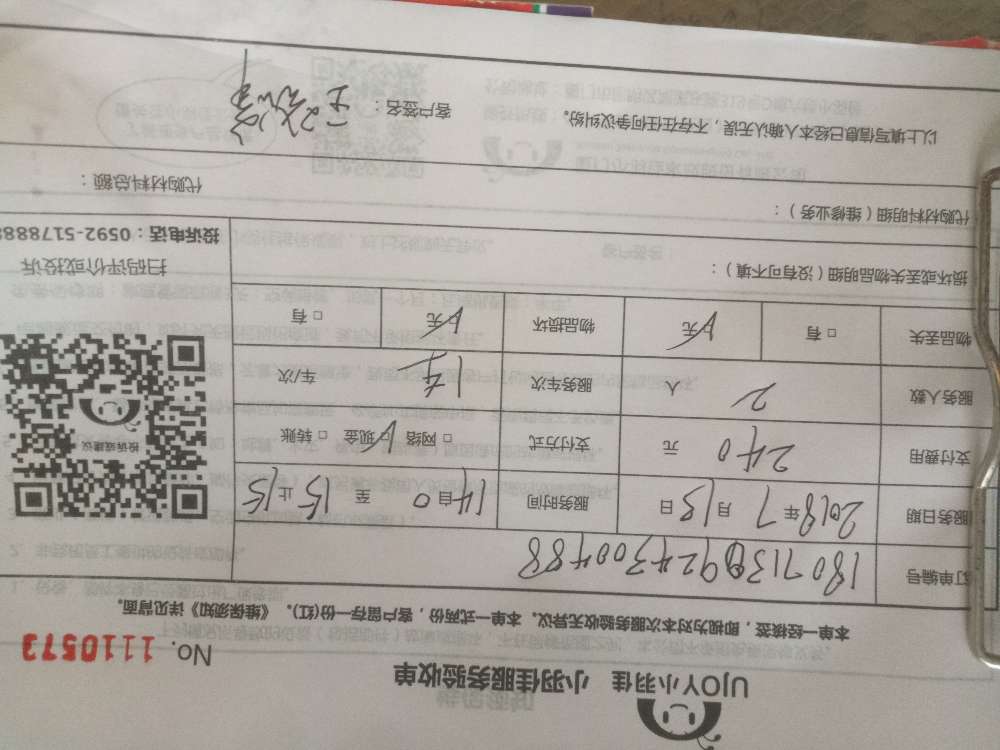 UJOY小羽佳 小羽佳服务验收单
No. 1110573
本单一经核签，即视为对本次服务验收无异议。本单一式两份，客户留存一份(红)。《维保须知》详见背面。
订单编号
服务日期 2018年7月15日 服务时间 自 至 15 15止
支付费用 240元 支付方式 □ 网络 现金 □ 转账
服务人数 2人 服务车次 车/次
物品丢失 □ 有 无 物品损坏 无 □ 有
投诉或建议
扫码评价或投诉
投诉电话：0592-517888
损坏或丢失物品明细（没有可不填）：
代购材料明细（维修业务）：
代购材料总额：
以上填写信息已经本人确认无误，不存在任何争议纠纷。
客户签名：